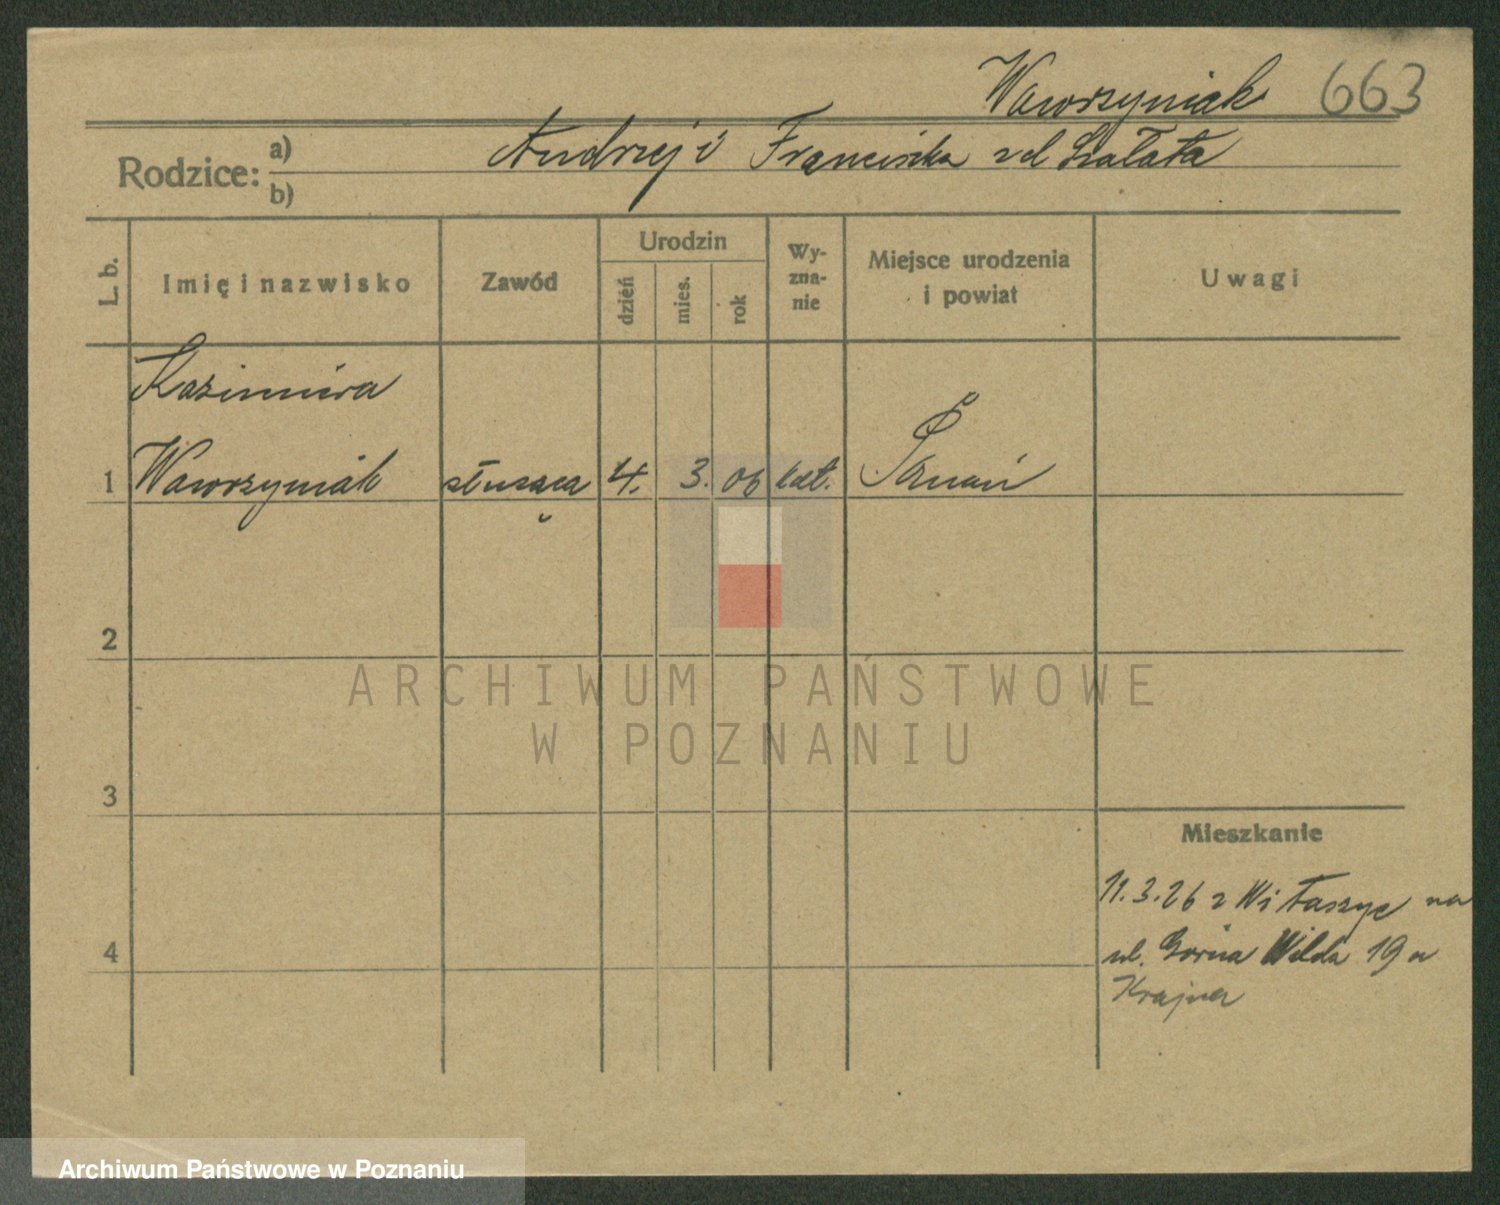 Wawrzyniak 663
Rodzice: a) Andrzej i Franciszka zd Szałata
b)
L. b.
Imię i nazwisko
Zawód
Urodzin
dzień
mies.
rok
Wy-
zna-
nie
Miejsce urodzenia
i powiat
Uwagi
Kazimiera
1 Wawrzyniak służąca 4. 3. 06 kat. Poznań
2
3
4
Mieszkanie
11.3.26 z Witaszyc na
ul. Górna Wilda 19 u
Krajna
ARCHIWUM PAŃSTWOWE
W POZNANIU
Archiwum Państwowe w Poznaniu